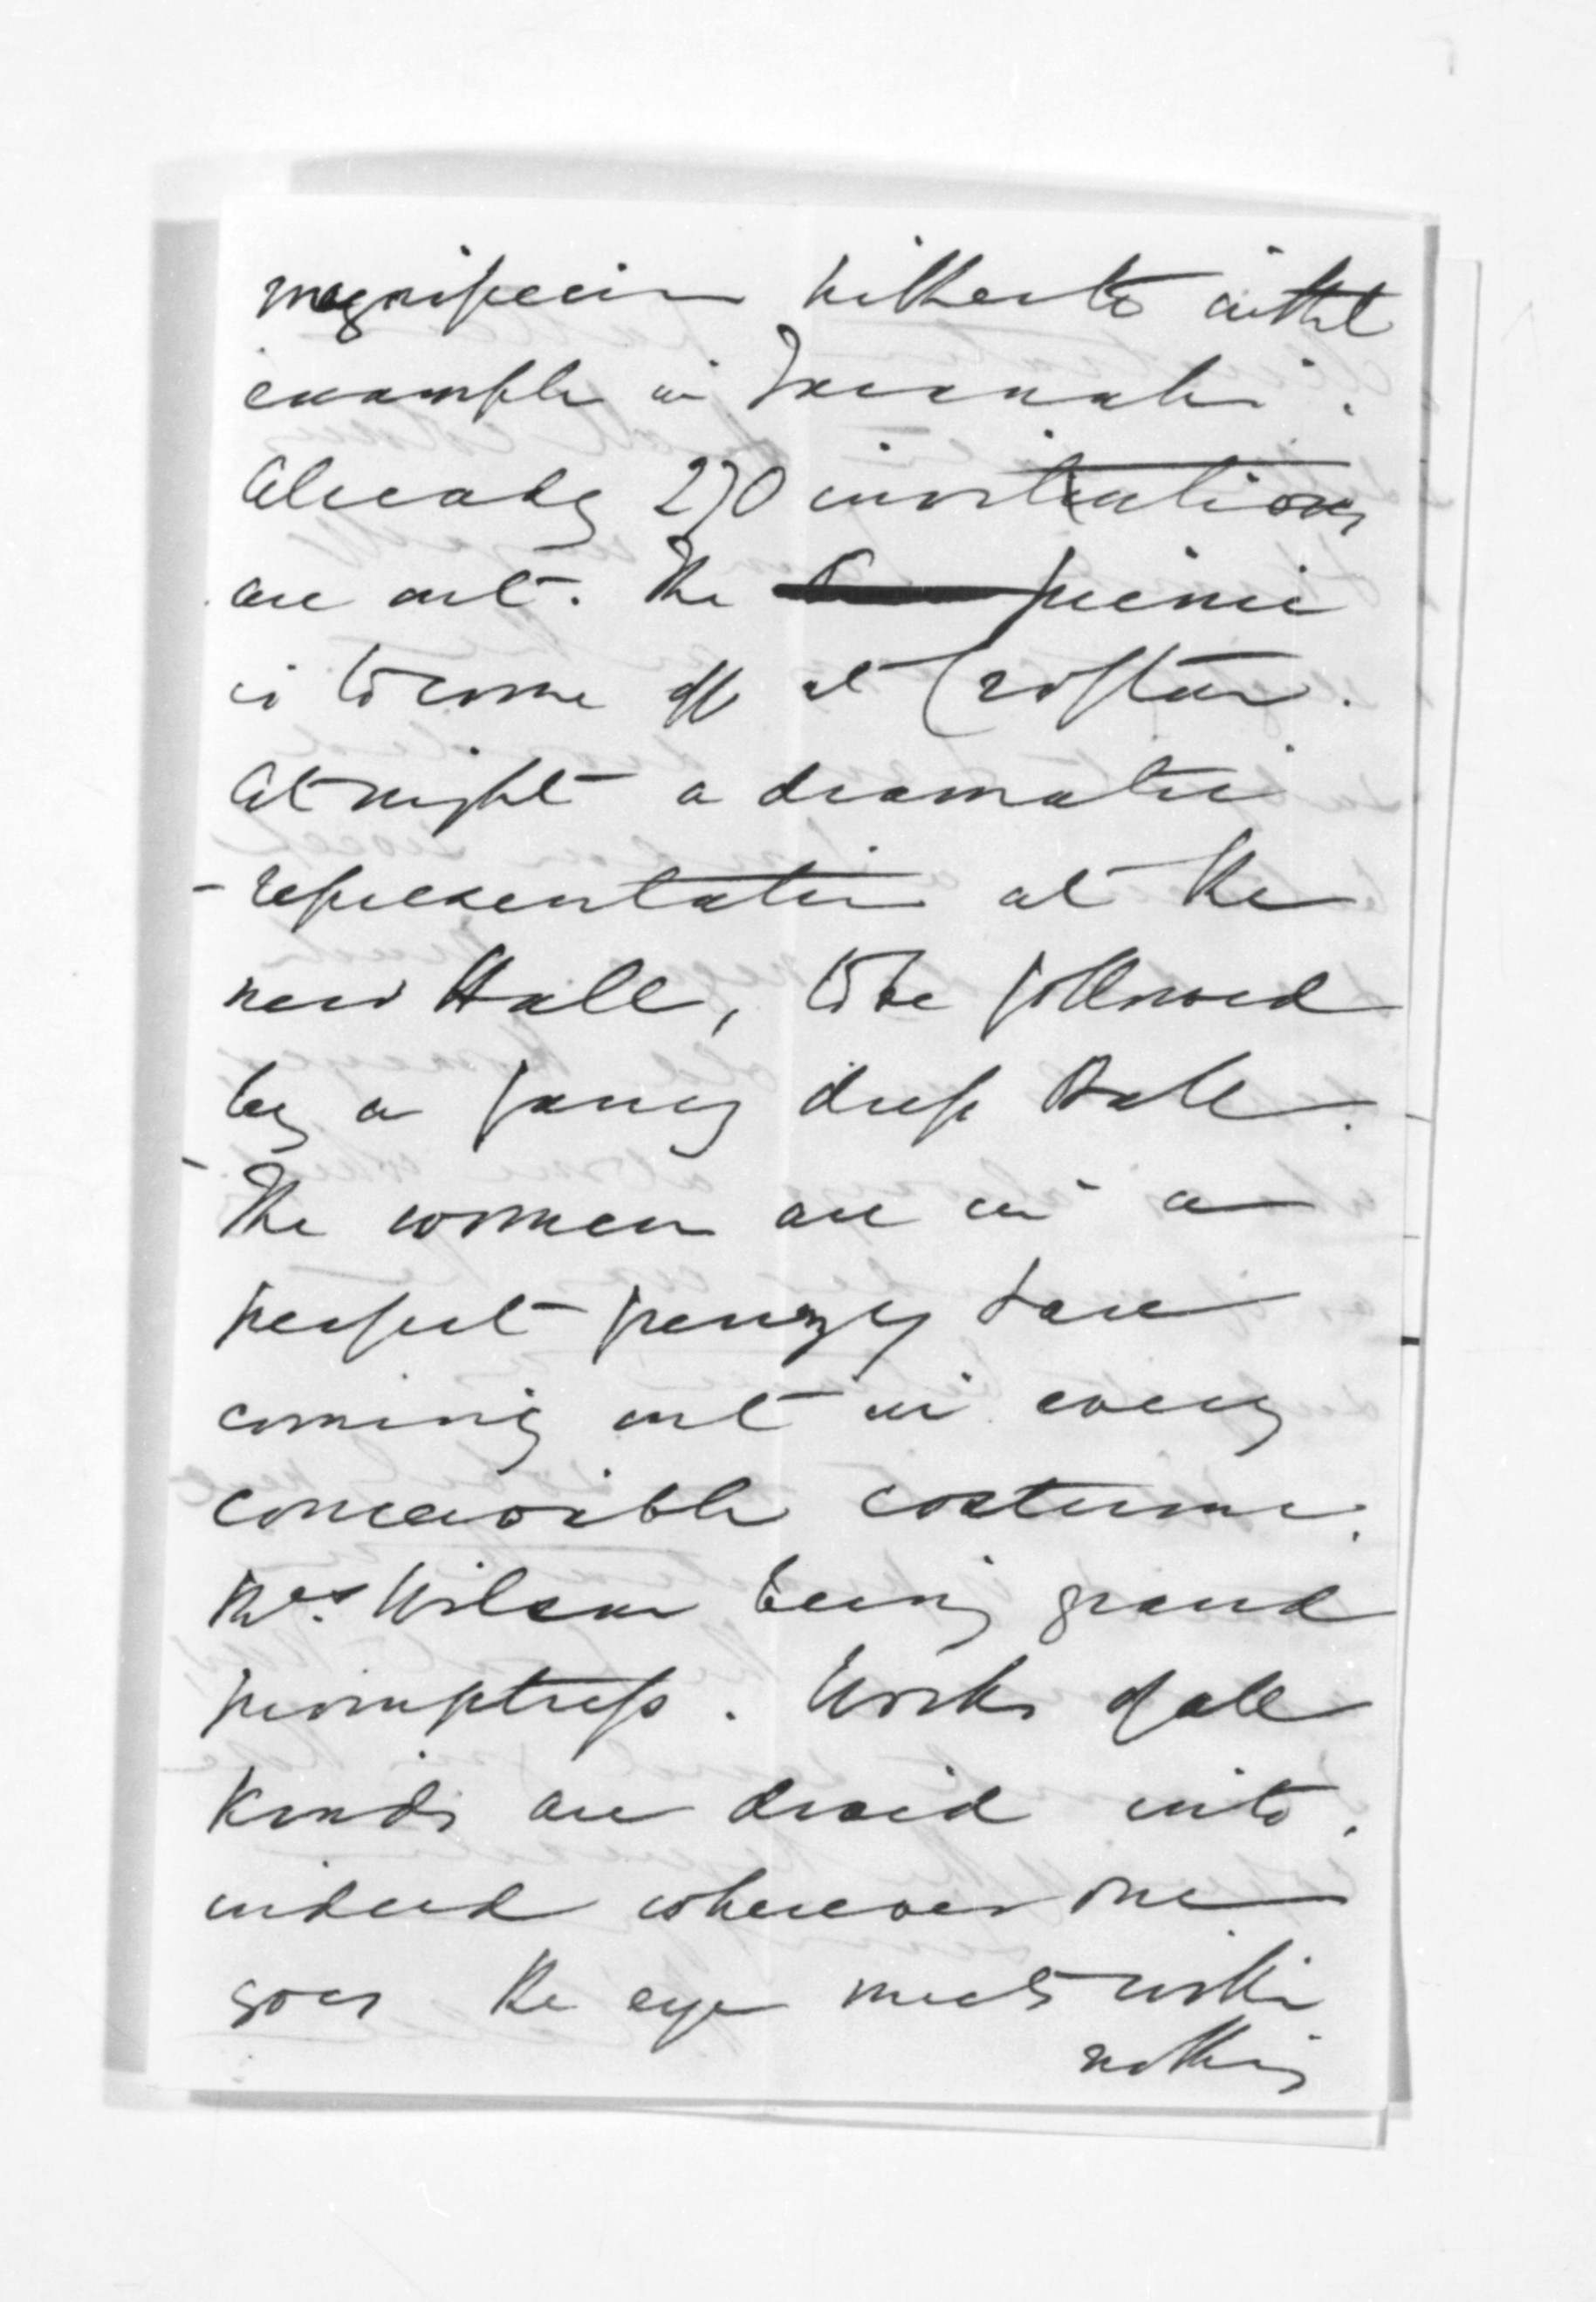 magnificence hitherto without
example in Taranaki.
Already 270 invitations
are out. The picnic
is to come off at Crofton.
At night a dramatic
representation at the
new Hall, to be followed
by a fancy dress Ball.
The women are in a
perfect frenzy & are
coming out in every
conceivable costume.
Mrs. Wilson being grand
promptress. Works of all
kinds are dived into,
indeed wherever one
goes the eye meets with
nothing